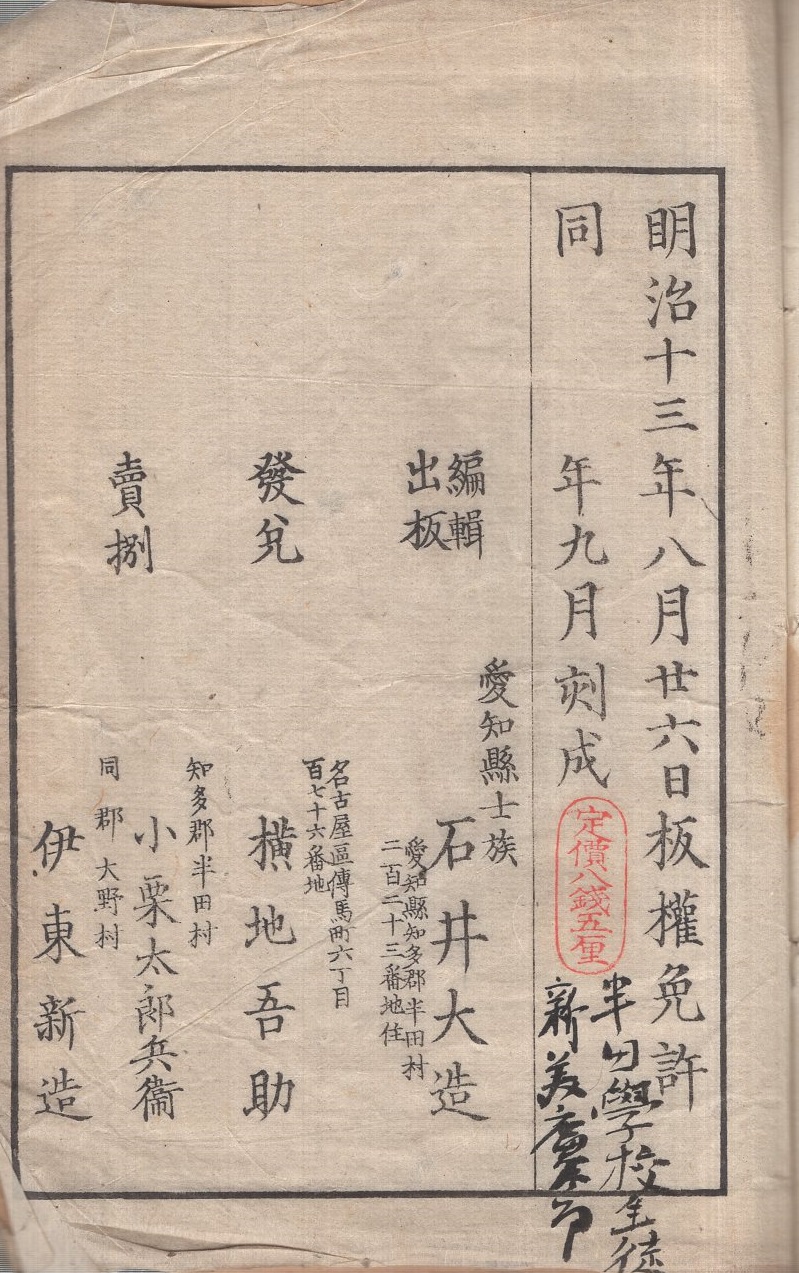 明治十三年八月廿六日板權免許
同年九月刻成
定價八錢五厘
半田學校生徒
新美
愛知縣士族
編輯
出板
石井大造
愛知縣知多郡半田村
二百二十三番地住
名古屋區傳馬町六丁目
百七十六番地
發兌
横地吾助
知多郡半田村
賣捌
小栗太郎兵衞
同郡大野村
伊東新造